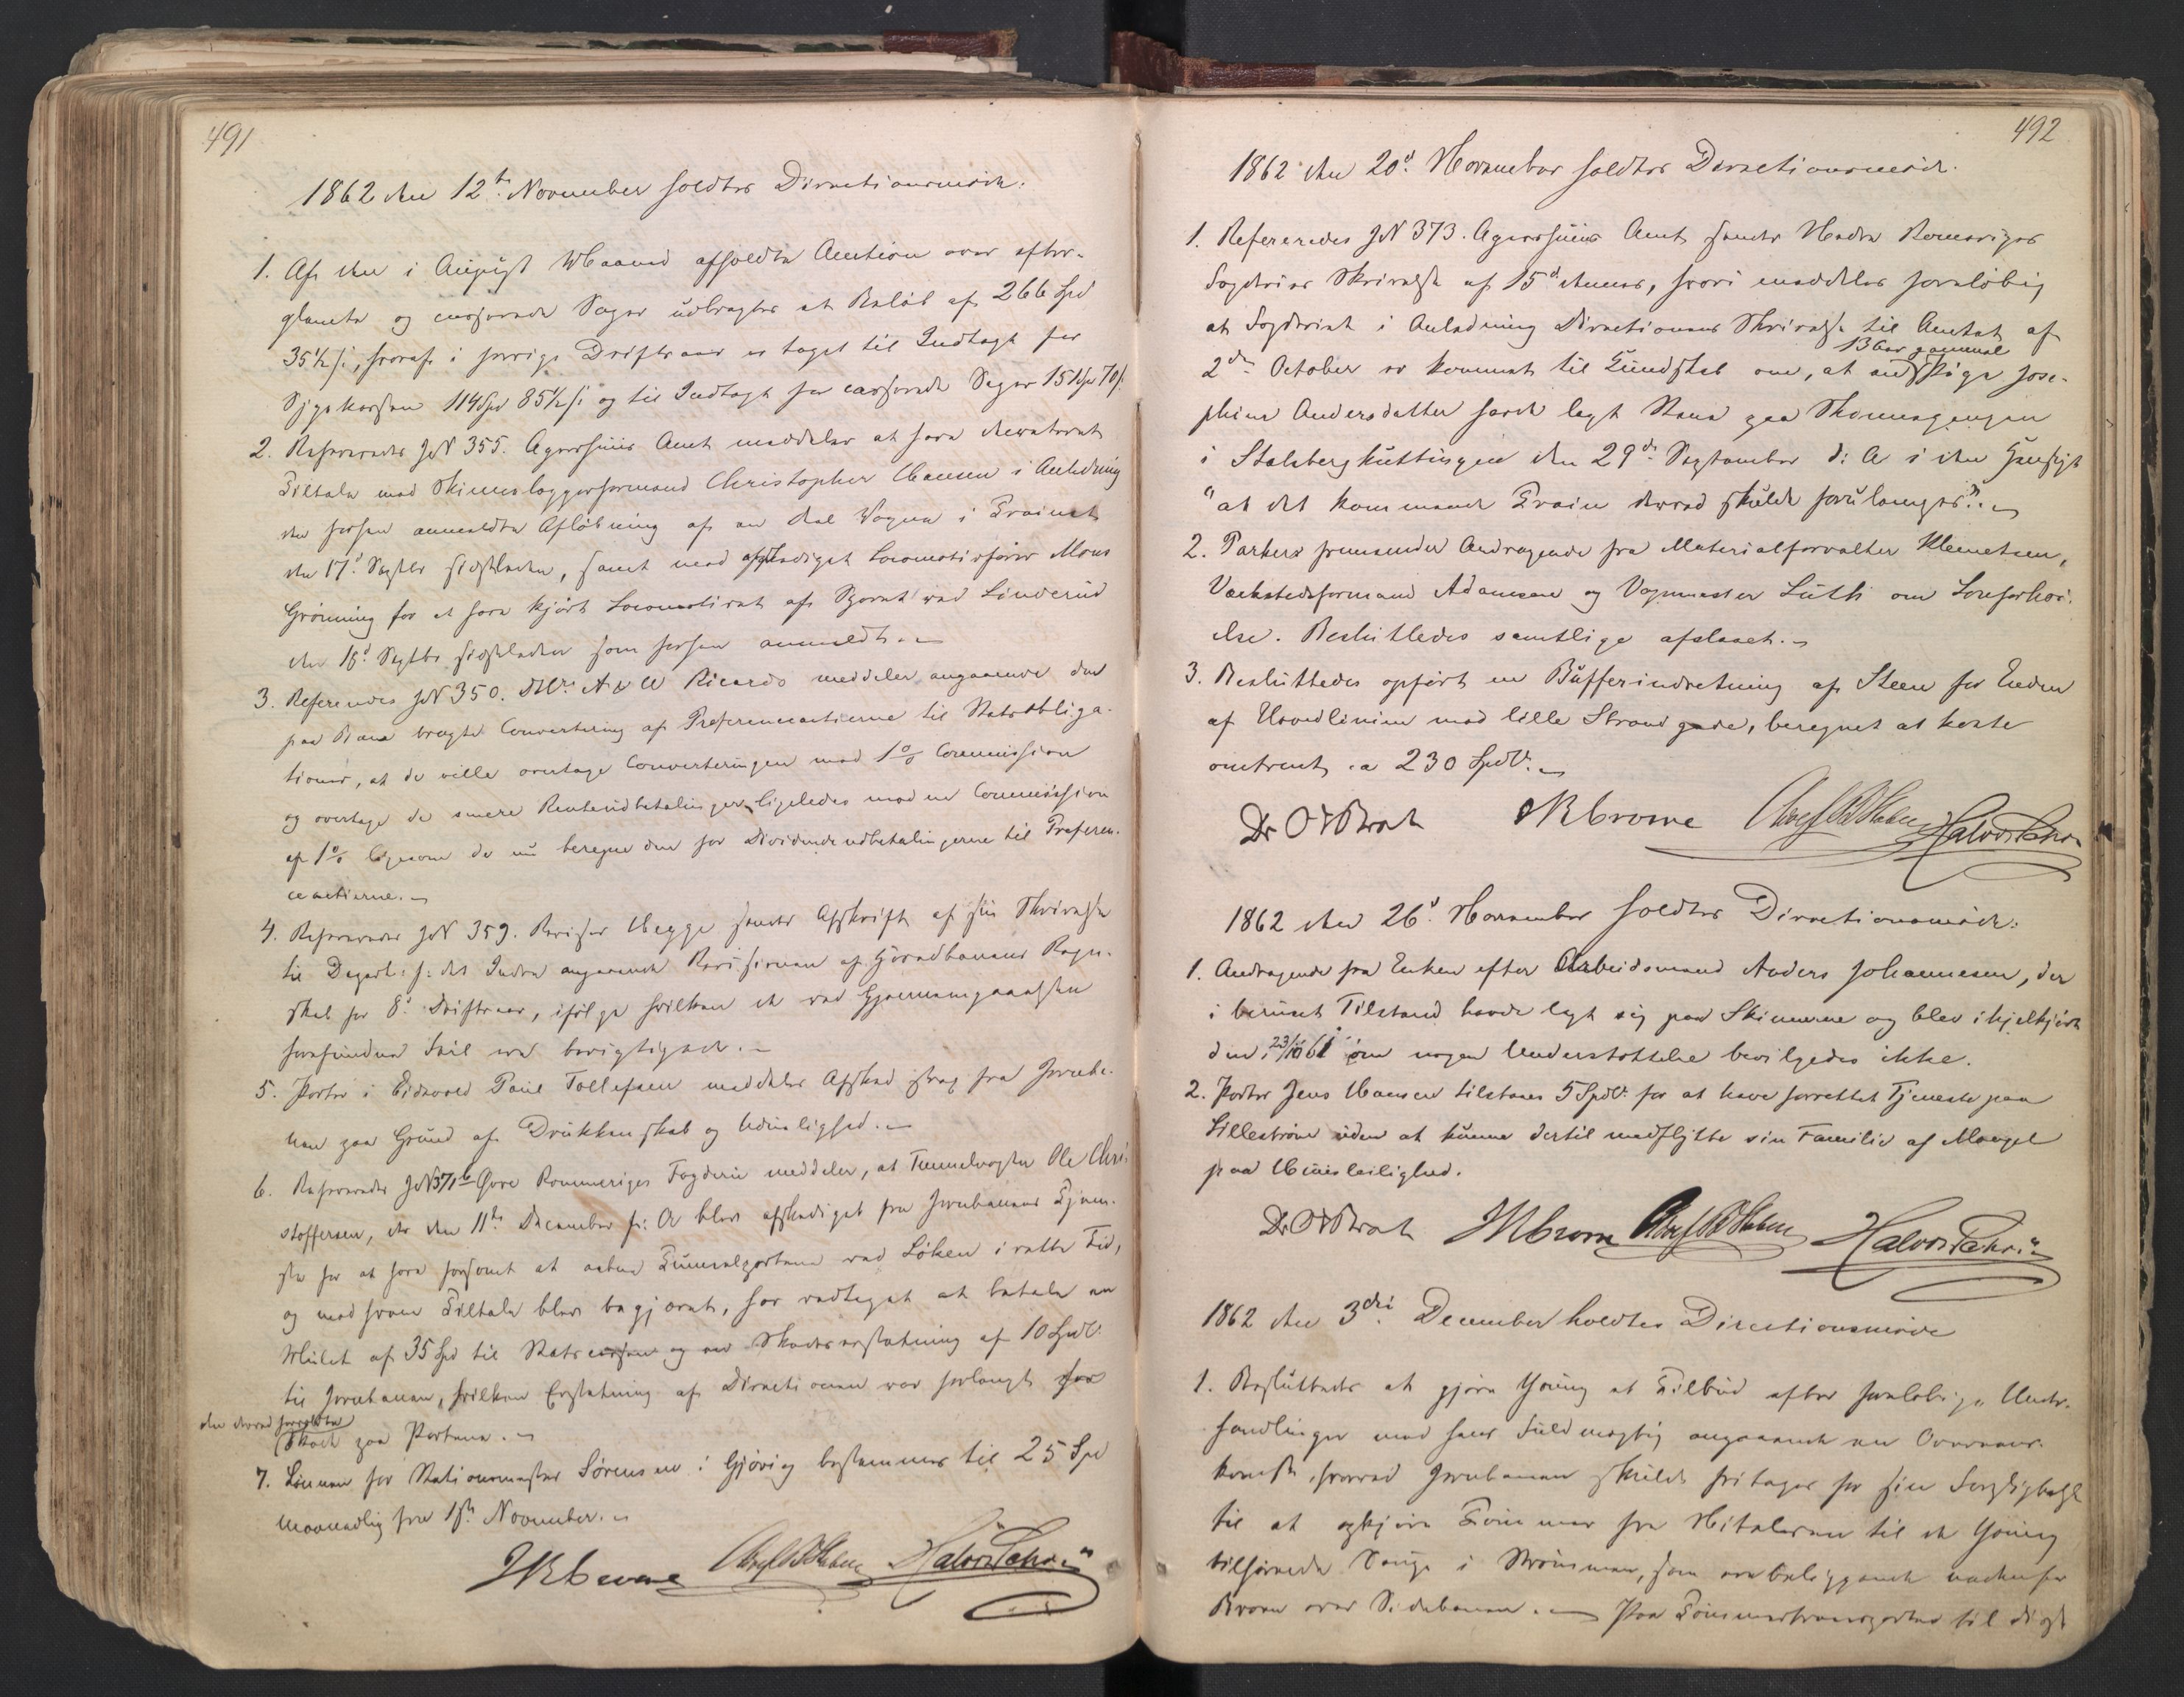 491
1862 den 12te November holdtes Directionsmøde.
1. Af den i August Maaned afholdte Auction over efter-
glemte og casserede Sager udbragtes et Beløb af 266 Spd
35½ s, hvoraf i forrige Driftsaar er taget til Indtægt for
Sygekassen 114 Spd 85½ s og til Indtægt for casserede Sager 151 Spd 70 s.
2. Refereredes JN 355. Agershuus Amt meddeler at have decreteret
Tiltale mod Skinnelæggerformand Christopher Hansen i Anledning
den herfra anmeldte Afløbning af en Del Vogne i Trainet
den 17d Septbr sidstleden, samt mod afskediget Locomotivfører Mons
Grønning for at have kjørt Locomotivet af Sporet ved Linderud
den 18d Septbr sidstleden som herfra anmeldt.
3. Refereredes JN 350. DHrr A & W Ricardo meddeler angaaende den
paa Bane bragte Convertering af Preferenceactierne til Statsobliga-
tioner, at de ville overtage Converteringen mod 1% Commission
og overtage de senere Renteudbetalinger ligeledes mod en Commission
af 1% ligesom de nu beregne den for Dividendeudbetalingerne til Preferen-
ceactierne.
4. Refereredes JN 359. Revisor Hegge sender Afskrift af sin Skrivelse
til Depart: f: det Indre angaaende Revisionen af Hovedbanens Regn-
skab for 8d Driftsaar, ifølge hvilken de ved Gjennemgaaelsen
forefundne Feil ere berigtigede.
5. Porter i Eidsvold Poul Tollefsen meddeles Afsked strax fra Jernba-
nen paa Grund af Drukkenskab og Uduelighed.
6. Refereredes JN 371b Øvre Rommeriges Fogderie meddeler, at Tunnelvogter Ole Chri-
stoffersen, der den 11te December f: A blev afskediget fra Jernbanens Tjene-
ste for at have forsømt at aabne Tunnelportene ved Løken i rette Tid,
og mod hvem Tiltale blev begjæret, har vedtaget at betale en
Mulct af 35 Spd til Statscassen og en Skadeserstatning af 10 Spd
til Jernbanen, hvilken Erstatning af Directionen var forlangt for
den derved forvoldte
Skade paa Portene.
7. Lønnen for Stationsmester Sørensen i Gjøvig bestemmes til 25 Spd
maanedlig fra 1ste November.
JNBrowne Halvor Schou
492
1862 den 20d November holdtes Directionsmøde.
1. Refereredes JN 373. Agershuus Amt sender Nedre Romeriges
Fogderies Skrivelse af 15d dennes, hvori meddeles foreløbig
at Fogderiet i Anledning Directionens Skrivelse til Amtet af
13 Aar gammel
2den October er kommet til Kundskab om, at en Pige Jose-
phine Andersdatter havde lagt Stene paa Skinnegangen
i Stalsbergkuttingen den 29de September d: A i den Hensigt
"at det kommende Train derved skulde forulempes".
2. Parkers fremsender Andragende fra Materialforvalter Klemetsen,
Værkstedsformand Adamsen og Vognmester Lüth om Lønforhøi-
else. Besluttedes samtlige afslaaet.
3. Besluttedes opført en Bufferindretning af Steen for Enden
af Hovedlinien mod lille Strandgade, beregnet at koste
omtrent ca 230 Spd.
Dr OJBroch JNBrowne Halvor Schou
1862 den 26d November holdtes Directionsmøde.
1. Andragende fra Enken efter Arbeidsmand Anders Johannesen, der
i beruset Tilstand havde lagt sig paa Skinnerne og blev ihjelkjørt
den 23/10 61 om nogen Understøttelse bevilgedes ikke.
2. Porter Jens Hansen tilstaaes 5 Spd for at have forrettet Tjeneste paa
Lillestrøm uden at kunne dertil medflytte sin Familie af Mangel
paa Huusleilighed.
Dr OJBroch JNBrowne Halvor Schou
1862 den 3die December holdtes Directionsmøde
1. Besluttedes at gjøre Young et Tilbud efter foreløbige Under-
handlinger med hans Fuldmægtig angaaende en Overeens-
komst, hvorved Jernbanen skulde fritages for sin Forpligtelse
til at opkjøre Tømmer fra Nitelven til de Young
tilhørende Sauge i Strømmen, som ere beliggende nedenfor
Broen over Sidebanen. — Paa Tømmertransporten til disse